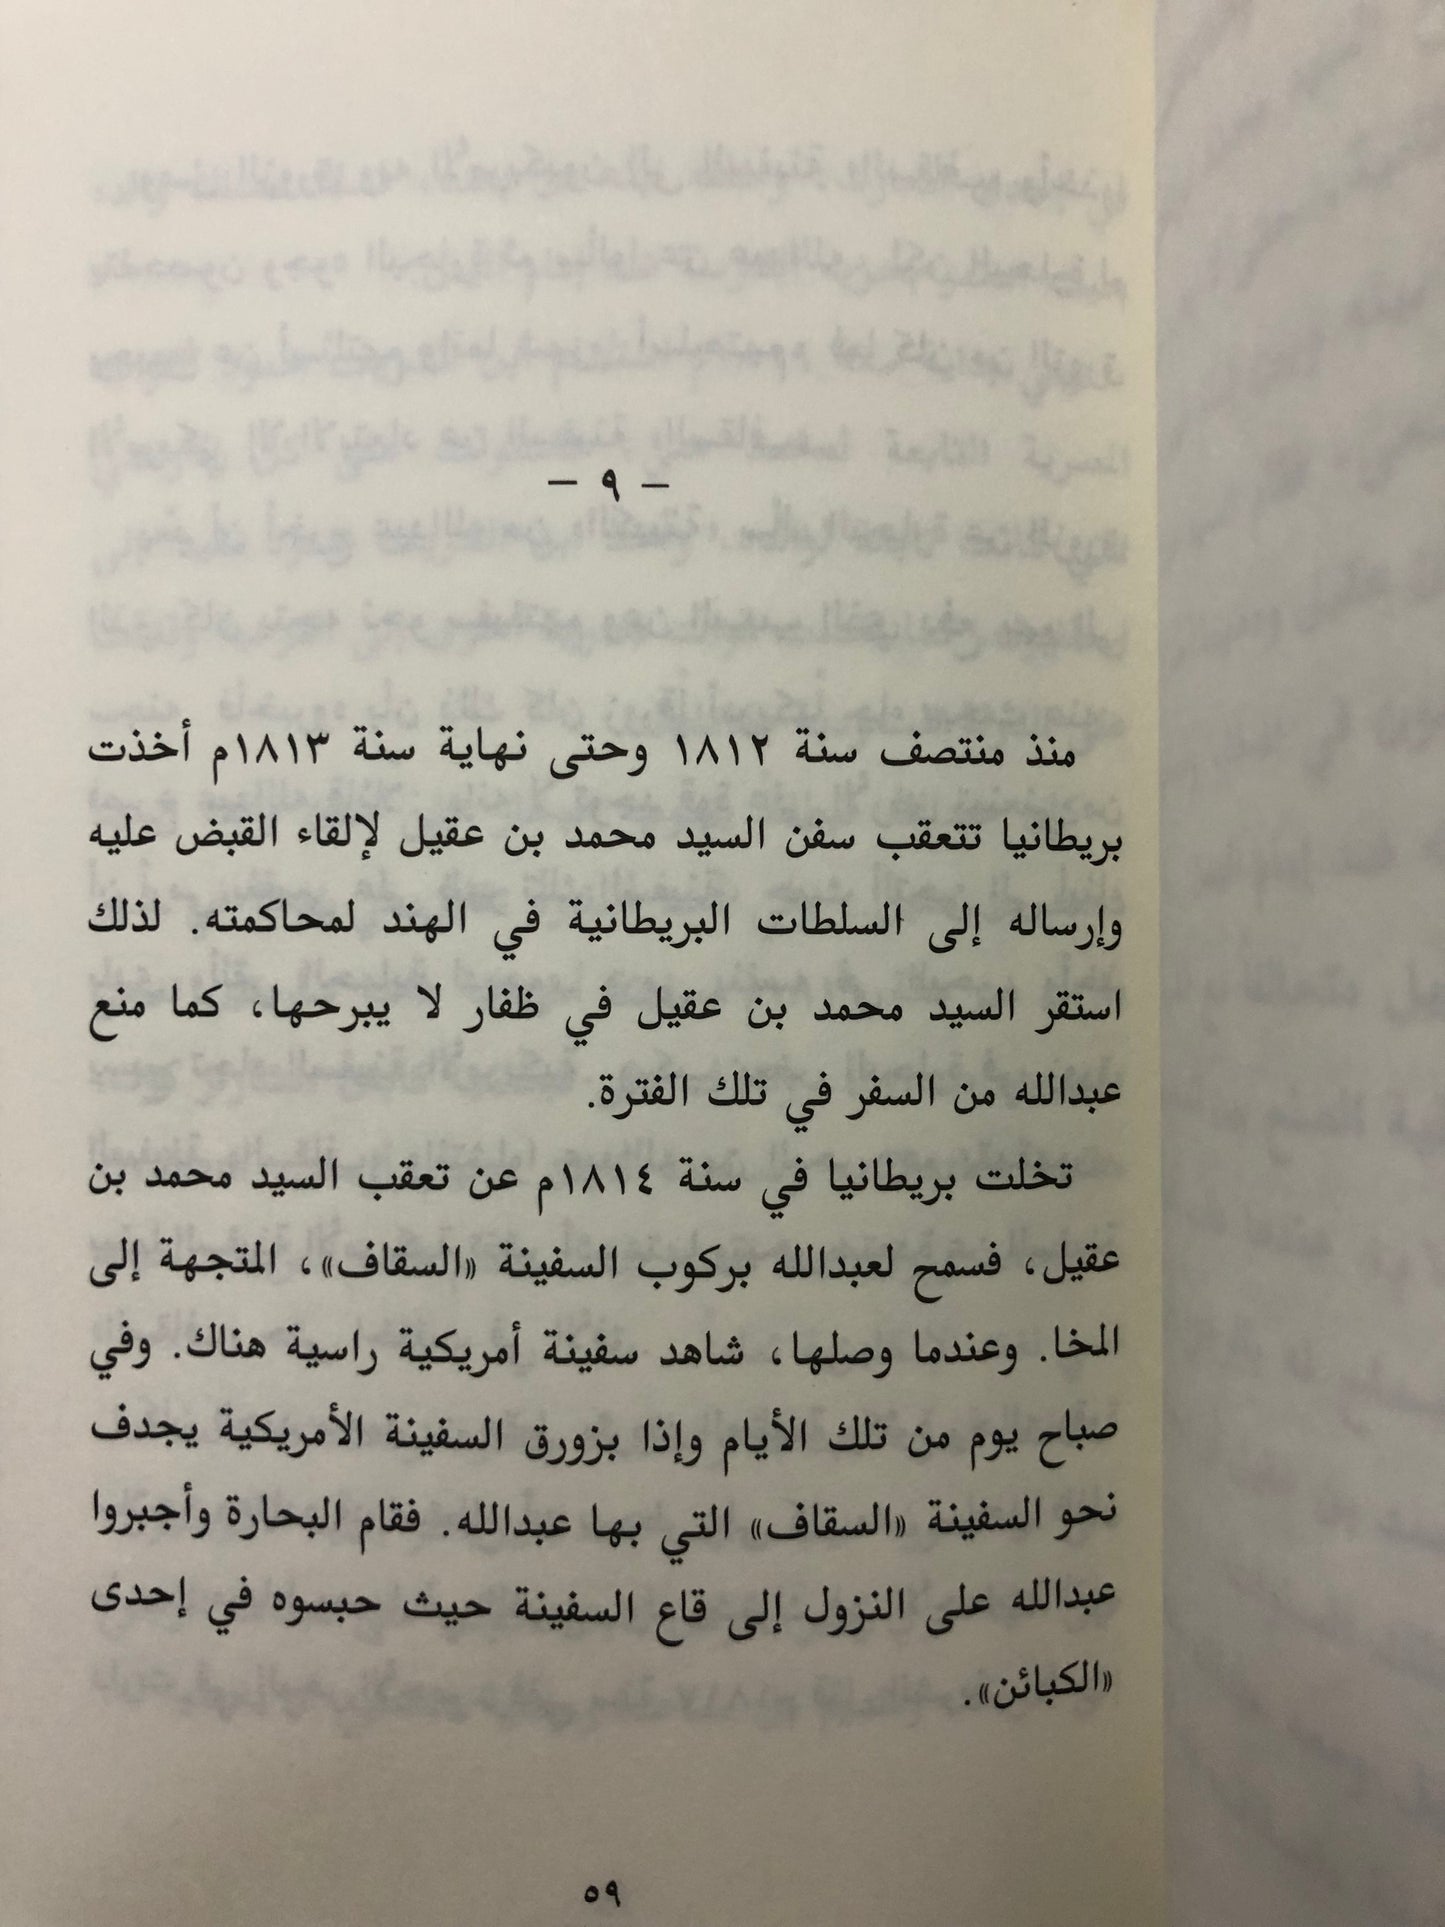 – ٩ –
منذ منتصف سنة ١٨١٢ وحتى نهاية سنة ١٨١٣م أخذت
بريطانيا تتعقب سفن السيد محمد بن عقيل لإلقاء القبض عليه
وإرساله إلى السلطات البريطانية في الهند لمحاكمته. لذلك
استقر السيد محمد بن عقيل في ظفار لا يبرحها، كما منع
عبدالله من السفر في تلك الفترة.
تخلت بريطانيا في سنة ١٨١٤م عن تعقب السيد محمد بن
عقيل، فسمح لعبدالله بركوب السفينة «السقاف»، المتجهة إلى
المخا. وعندما وصلها، شاهد سفينة أمريكية راسية هناك. وفي
صباح يوم من تلك الأيام وإذا بزورق السفينة الأمريكية يجدف
نحو السفينة «السقاف» التي بها عبدالله. فقام البحارة وأجبروا
عبدالله على النزول إلى قاع السفينة حيث حبسوه في إحدى
«الكبائن».
٥٩